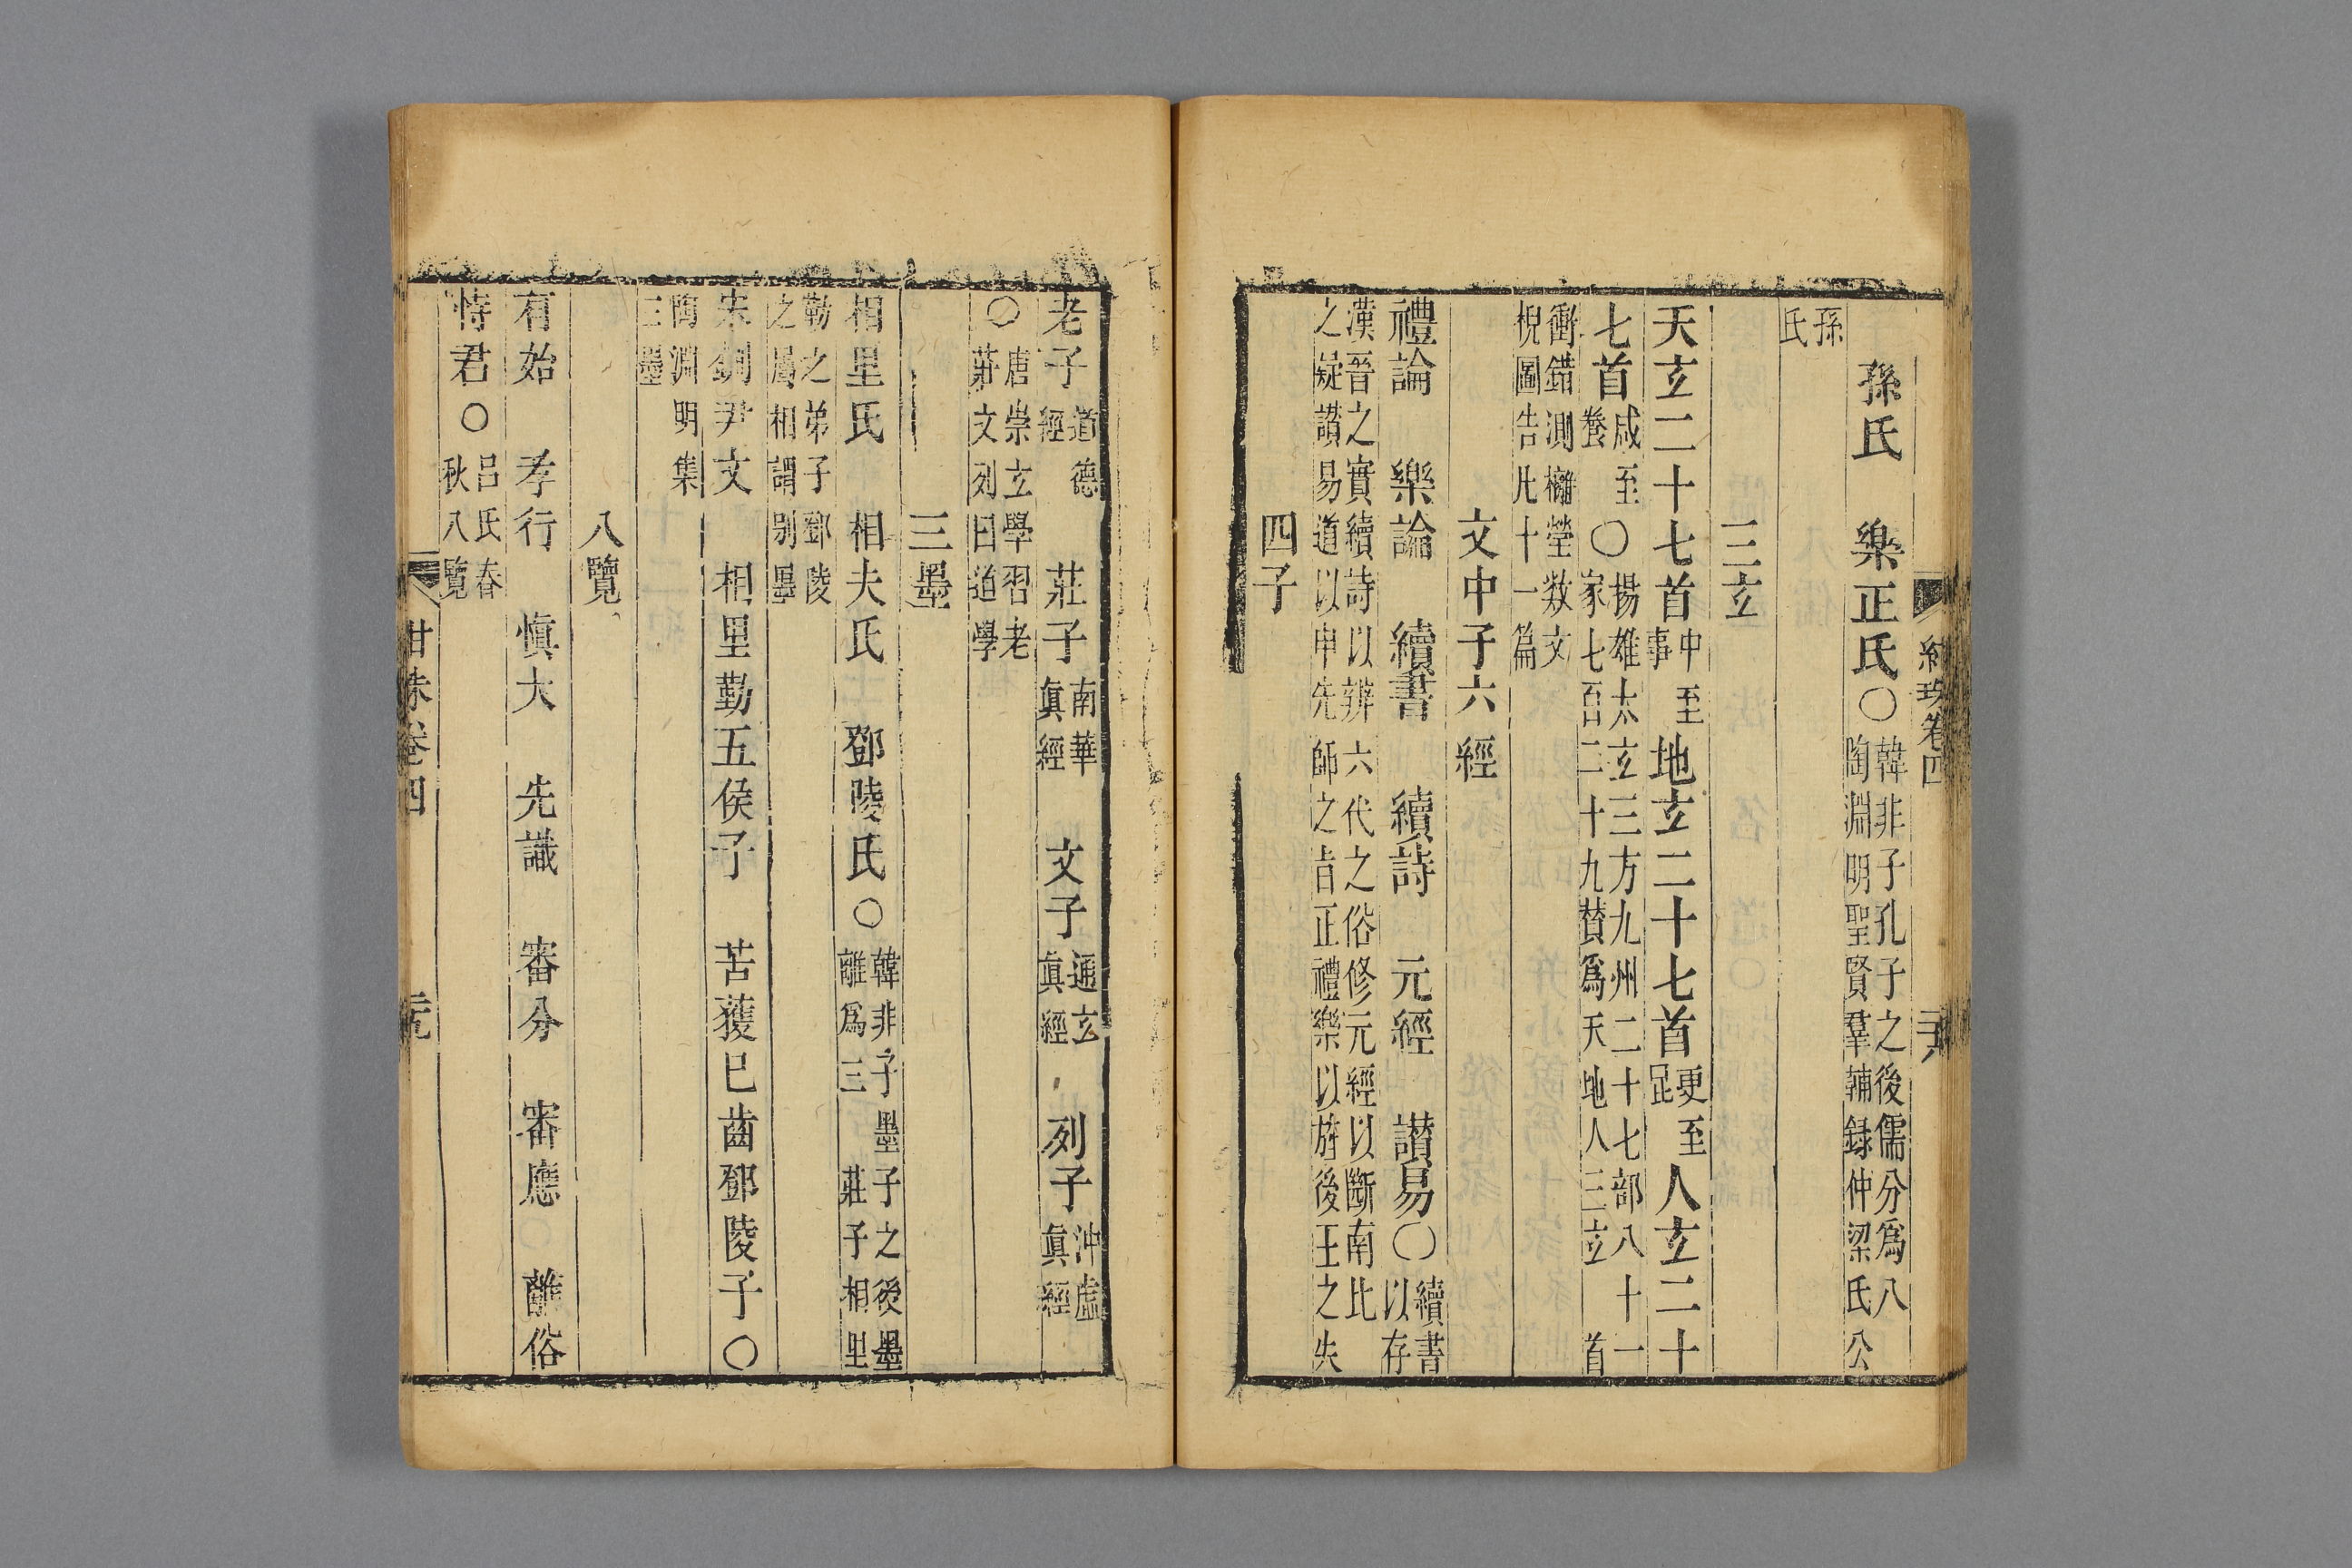 孫氏　樂正氏〇韓非子孔子之後儒分爲八陶淵明聖賢羣輔録仲梁氏公
孫氏
三玄
天玄二十七首中至事地玄二十七首更至人玄二十
七首咸至養〇揚雄太玄三方九州二十七部八十一家七百二十九贊爲天地人三玄首
衝錯測攡瑩数文掜圖告凡十一篇
文中子六經
禮論　樂論　續書　續詩　元經　讃易〇續書以存
漢晉之實續詩以辨六代之俗修元經以斷南北之疑讃易道以申先師之旨正禮樂以旌後王之失
四子
老子道德經　莊子南華眞經　文子通玄眞經　列子沖虛眞經
〇唐崇玄學習老莊文列曰道學
三墨
相里氏　相夫氏　鄧陵氏〇韓非子墨子之後墨離爲三　莊子相里
勤之弟子鄧陵之屬相謂别墨
宋鈃尹文　相里勤五侯子　苦獲已齒鄧陵子〇
陶淵明集三墨
八覽
有始　孝行　愼大　先識　審分　審應　離俗
恃君〇吕氏春秋八覽